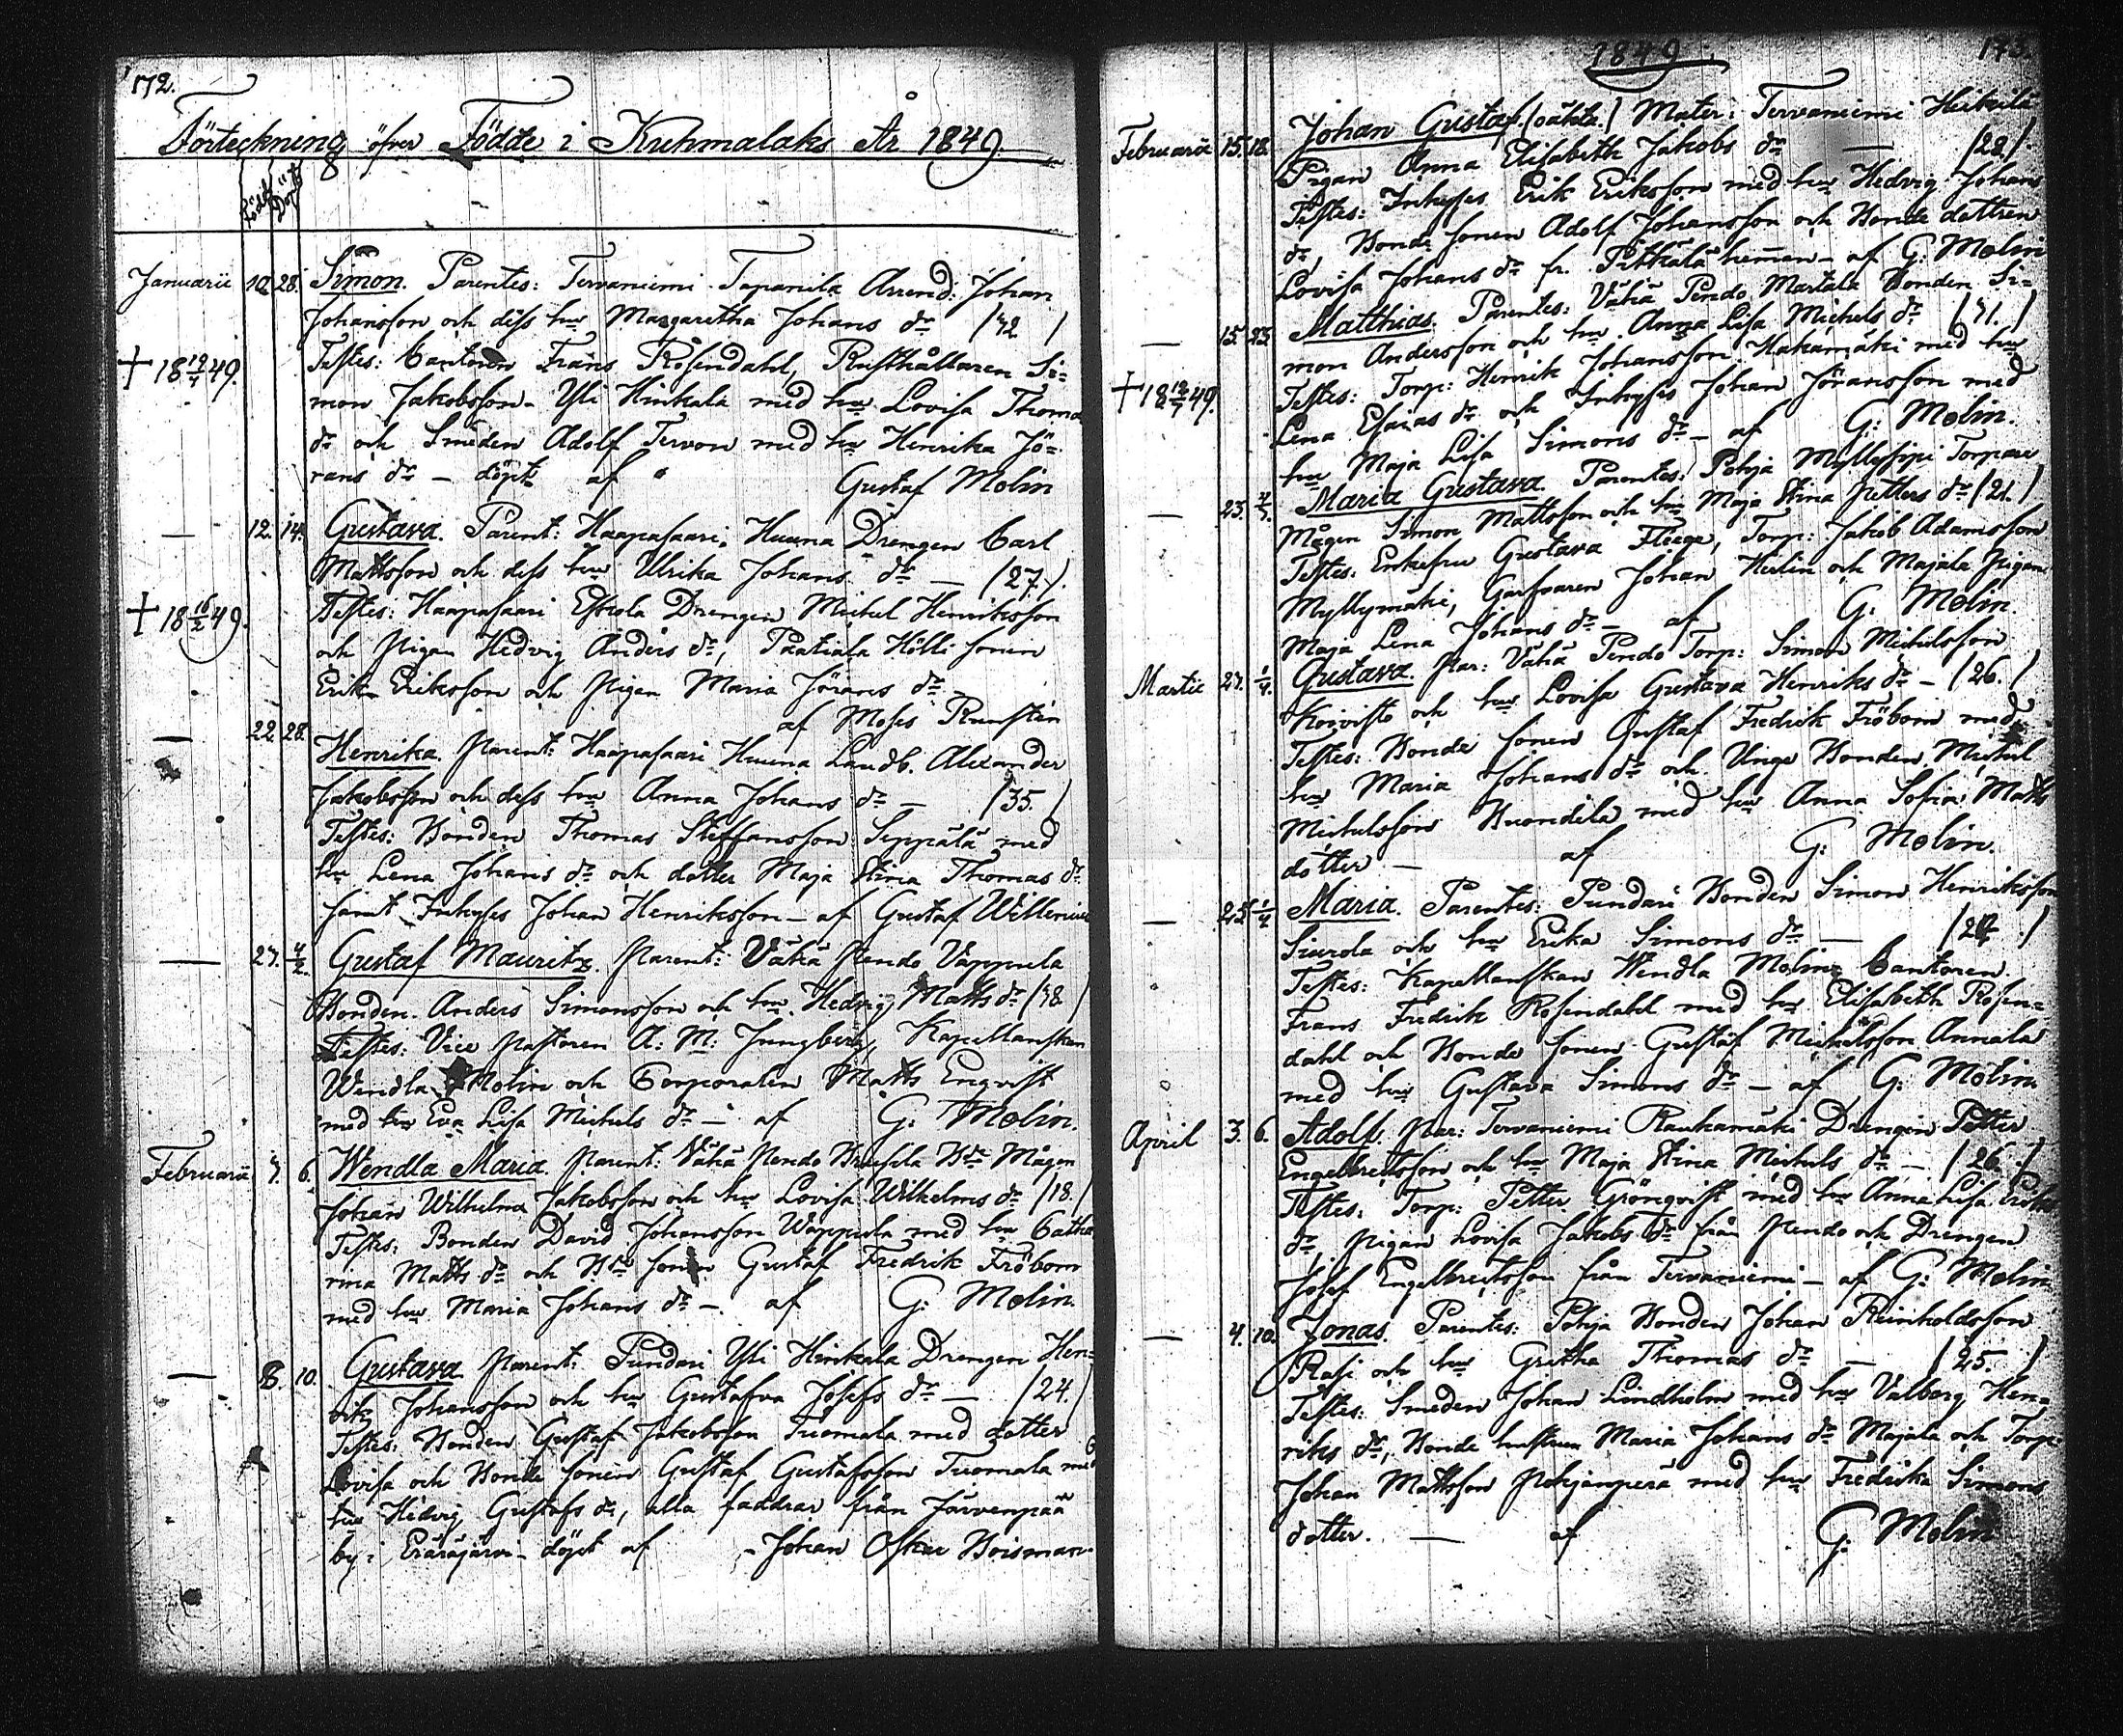 172.
Förteckning öfver Födde i Kuhmalaks År 1849
Född Döpt
Januarii 10. 28. Simon. Parentes: Tervaniemi Tapanila Arrend: Johan
Johansson och dess hu Margaretha Johans dr (42)
† 18 19/4 49. Testes: Cantoren Frans Rosendahl, Rusthållaren Si=
mon Jakobsson Yli Hinkala med hu Lovisa Thomæ
dr och Smeden Adolf Tervon med hu Henrika Jö=
rans dr – döpt af Gustaf Molin
— 12. 14. Gustava. Parent: Haapasaari Huuna Drengen Carl
Mattsson och dess hu Ulrika Johans dr — (27.)
† 18 16/2 49. Testes: Haapasaari Eskola Drengen Michel Henriksson
och Pigan Hedvig Anders dr, Paatiala Hölli sonen
Erik Eriksson och Pigan Maria Jörans dr –
af Moses Runsten
— 22. 28. Henrika. Parent: Haapasaari Huuna Landb. Alexander
Jakobsson och dess hu Anna Johans dr – (35.)
Testes: Bonden Thomas Steffansson Seppälä med
hu Lena Johans dr och dotter Maja Stina Thomas dr
samt Inhyses Johan Henriksson – af Gustaf Willenius
— 27. 4/2. Gustaf Mauritz. Parent: Vähä Pendo Vappula
Bonden Anders Simonsson och hu Hedvig Matts dr (38)
Testes: Vice Pastoren A: M: Ljungberg, Kapellanskan
Wendla Molin och Corporalen Matts Enqvist
med hu Eva Lisa Michels dr – af G: Molin.
Februarii 4. 6. Wendla Maria. Parent: Vähä Pendo Bde Mågen
Johan Wilhelm Jakobsson och hu Lovisa Wilhelms dr (18.)
Testes: Bonden David Johansson Wappula med hu Catha
rina Matts dr och Bde sonen Gustaf Fredrik Fröbom
med hu Maria Johans dr –. af G: Molin.
— 8. 10. Gustava Parent: Pundari Yli Hinkala Drengen Hen=
rik Johansson och hu Gustafva Josefs dr — (24.)
Testes: Bonden Gustaf Jakobsson Tuomala med dotter
Lovisa och Bonde sonen Gustaf Gustafsson Tuomala med
hu Hedvig Gustafs dr, alla faddrar från Järvenpää
by i Eräjärvi – döpt af Johan Oskar Boisman.
1849. 173.
Februarii 15. 18. Johan Gustaf. (oäkta.) Mater: Tervaniemi Heikilä
Pigan Anna Elisabeth Jakobs dr — (28.)
Testes: Inhyses Erik Eriksson med hu Hedvig Johans
dr, Bonde sonen Adolf Johansson och Bonde dottren
Lovisa Johans dr fr. Pitkälä hemman – af G: Molin
— 15. 25. Matthias. Parentes: Vähä Pendo Martala Bonden Si=
mon Andersson och hu Anna Lisa Michels dr (41.)
† 18 12/7 49. Testes: Torp: Henrik Johansson Hakamäki med hu
Lena Esaias dr och Inhyses Johan Jöransson med
hu Maja Lisa Simons dr – af G: Molin.
— 23. 4/3. Maria Gustava. Parentes: Pohja Myllysepi Torpare
Mågen Simon Mattsson och hu Maja Stina Petters dr (21.)
Testes: Enkefru Gustava Fleege, Torp: Jakob Adamsson
Myllymäki, Garfvaren Johan Helin och Majala Pigan
Maja Lena Johans dr – af G: Molin.
Martii 27. 1/4. Gustava. Par: Vähä Pendo Torp: Simon Michelsson
Koivisto och hu Lovisa Gustava Henriks dr – (26.)
Testes: Bonde sonen Gustaf Fredrik Fröbom med
hu Maria Johans dr och Unge Bonden Michel
Michelsson Kuondila med hu Anna Sofia Matts
dotter — af G: Molin.
— 25. 1/4. Maria. Parentes: Pundari Bonden Simon Henriksson
Siurola och hu Erika Simons dr —
Testes: Kapellanskan Wendla Molin, Cantoren
Frans Fredrik Rosendahl med hu Elisabeth Rosen=
dahl och Bonde sonen Gustaf Michelsson Annala
med hu Gustava Simons dr – af G: Molin.
April 3. 6. Adolf. Par: Tervaniemi Raukamäki Drengen Petter
Engelbrektsson och hu Maja Stina Michels dr – (26.)
Testes: Torp: Petter Grönqvist med hu Anna Lisa
dr, Pigan Lovisa Jakobs dr från Pendo och Drengen
Josef Engelbrektsson från Tervaniemi – af G: Molin
— 4. 10. Jonas. Parentes: Pohja Bonden Johan Reinholdsson
Rasi och hu Gretha Thomas dr — (25.)
Testes: Smeden Johan Lindholm med hu Valborg Hen=
riks dr, Bonde hustrun Maria Johans dr Majala och Torp:
Johan Mattsson Pohjanperä med hu Fredrika Simons
dotter. — af G: Molin